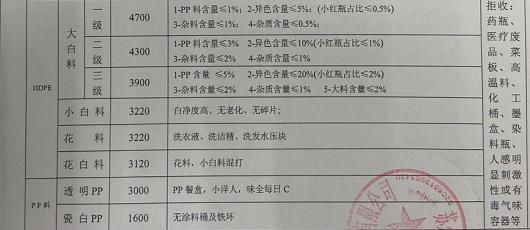 HDPE
大白料
一级
4700
1-PP 料含量≤1%; 2-异色含量≤5%; (小红瓶占比≤0.5%)
3-杂料含量≤1%; 4-杂质含量≤0.5%;
二级
4300
1-PP 料含量≤3% 2-异色含量≤10%(小红瓶占比≤1%)
3-杂料含量≤2% 4-杂质含量≤1%
三级
3900
1-PP 含量 ≤5% 2-异色含量≤20%(小红瓶占比≤2%)
3-杂料含量≤2% 4-杂质含量≤1% 5-大料含量≤2%
小白料
3220
白净度高、无老化、无碎片;
花料
3220
洗衣液、洗洁精、洗发水压块
花白料
3120
花料,小白料混打
PP料
透明 PP
3000
PP 餐盒,小洋人,味全每日 C
瓷白 PP
1600
无涂料桶及铁环
拒收:
药瓶、
医疗废
品、菜
板、高
温料、
化工
桶、墨
盒、染
料瓶、
人感明
显刺激
性或有
毒气味
容器等
限公司